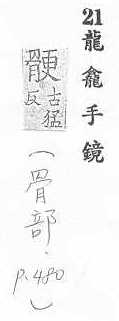 21龍龕手鏡
骾古猛反
(骨部·p.480)